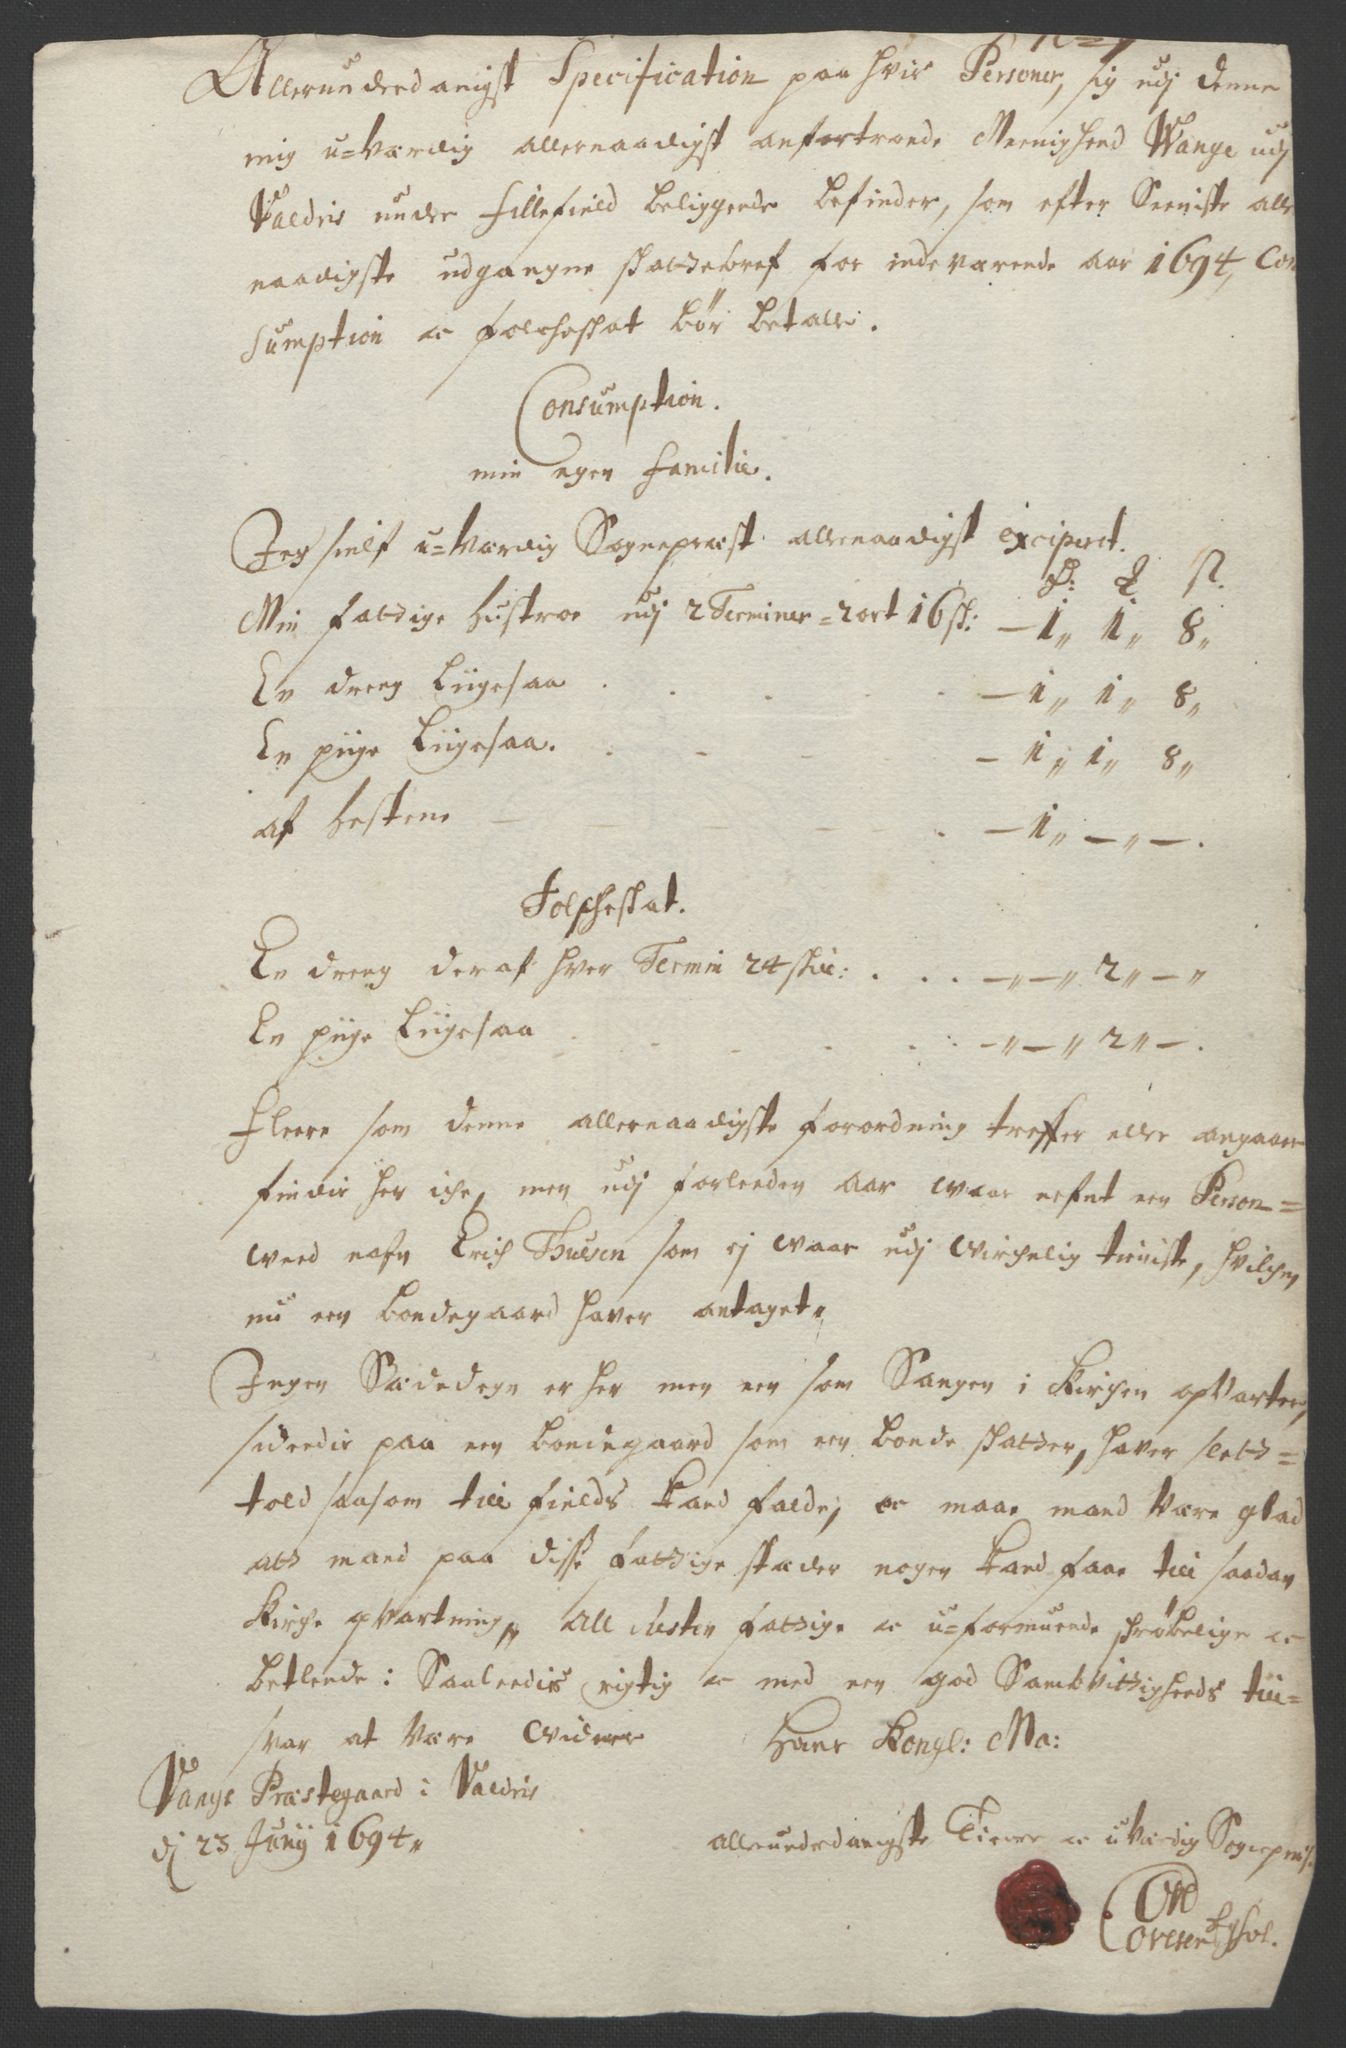 Allerunderdanigst Specification paa hvis Personer, sig udj denne
mig u=værdig allernaadigst anfortroede Meenighed Wange udj
Valdris under Fillefield beliggende befinder, som efter Seeniste aller
naadigste udgangne skattebref for indeværende aar 1694, Con
sumption oc folcheskat bør betalle.
Consumption.
min egen familie.
Jeg sielf u=værdig Sognepræst allernaadigst exciperet.
Min fattige hustroe udj 2 Terminer = 2 ort 16 sk: — 1„ 1„ 8„
En dreng liigesaa — 1„ 1„ 8„
En piige liigesaa. — 1„ 1„ 8„
af hestene — 1„ — „ — .
Folcheskat.
En dreng deraf hver Termin 24 skil: . . . — „ — „ 2„ — „
En piige liigesaa — „ — „ 2„ — .
Fleere som denne allernaadigste forordning treffer eller angaar
findis her iche, men udj forleeden aar waar nefnt een Person=
weed nafn Erich Thulsen som ej waar udj wirchelig tieniste, hvilchen
nu een bondegaard haver antaget„
Ingen Sædedegn er her men een som Sangen i Kirchen opvarter,
sideedis paa een bondegaard som een bonde skatter, haver slet
told saasom till fields kand falde, oc maae mand være glad
att mand paa disse fattige stæder nogen kand faae till saadan
Kirche opvartning„ All Resten fattige oc u=formuende skrøbelige oc
betlende: Saaleedis rigtig oc med een god Samvittigheeds till=
svar at være widner Hans Kongl: Ma:
Vange Præstegaard i Valdris
dj 23 Junij 1694„
allerunderdanigste Tiener oc uværdig Sognepræst
Ole
Ovesen